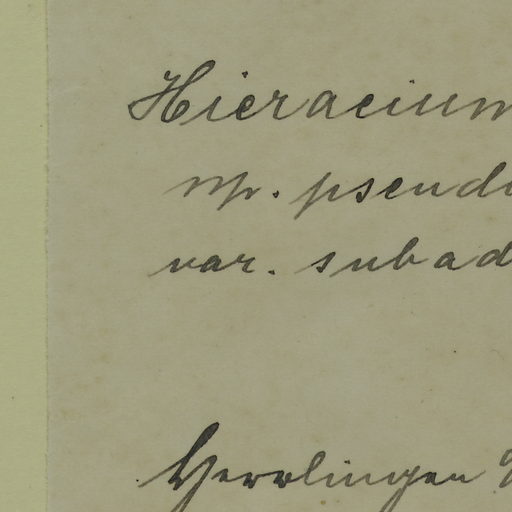 Hieracium
ssp. pseudo
var. subad
Herrlingen